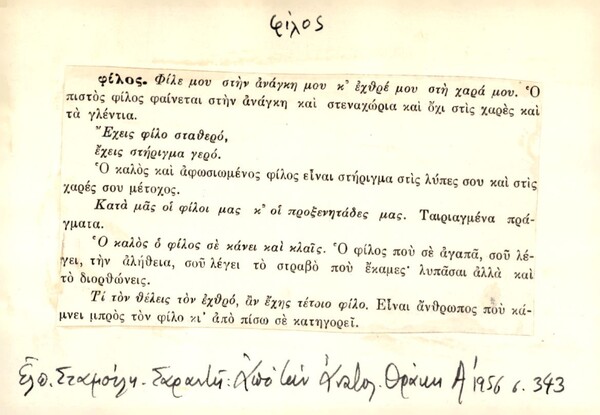 φίλος
φίλος. Φίλε μου στὴν ἀνάγκη μου κ' ἐχθρέ μου στὴ χαρά μου. Ὁ
πιστὸς φίλος φαίνεται στὴν ἀνάγκη καὶ στεναχώρια καὶ ὄχι στὶς χαρὲς καὶ
τὰ γλέντια.
Ἔχεις φίλο σταθερό,
ἔχεις στήριγμα γερό.
Ὁ καλὸς καὶ ἀφωσιωμένος φίλος εἶναι στήριγμα στὶς λύπες σου καὶ στὶς
χαρές σου μέτοχος.
Κατὰ μᾶς οἱ φίλοι μας κ' οἱ προξενητάδες μας. Ταιριαγμένα πρά-
γματα.
Ὁ καλὸς ὁ φίλος σὲ κάνει καὶ κλαῖς. Ὁ φίλος ποὺ σὲ ἀγαπᾶ, σοῦ λέ-
γει, τὴν ἀλήθεια, σοῦ λέγει τὸ στραβὸ ποὺ ἔκαμες· λυπᾶσαι ἀλλὰ καὶ
τὸ διορθώνεις.
Τί τὸν θέλεις τὸν ἐχθρό, ἂν ἔχῃς τέτοιο φίλο. Εἶναι ἄνθρωπος ποὺ κά-
μνει μπρὸς τὸν φίλο κι' ἀπὸ πίσω σὲ κατηγορεῖ.
Ἐλπ. Σταμούλη - Σαραντῆ: Ἀπὸ τὴν Ἀνατολ. Θράκη Α' 1956 σ. 343